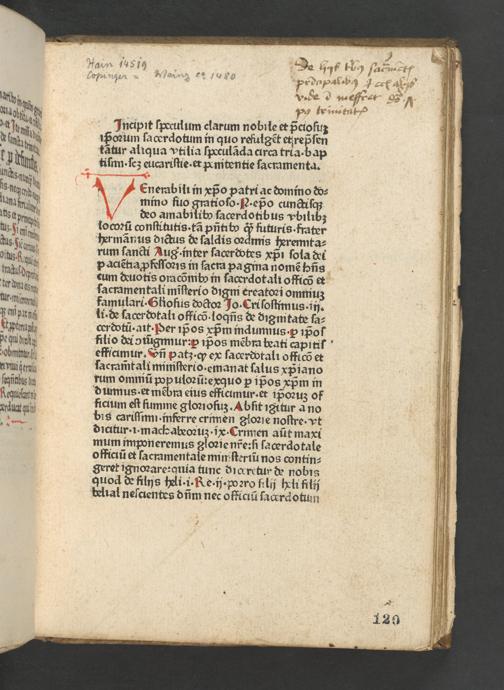 Hain 14519
Copinger = Mainz ca 1480
De hijs
vide
Incipit speculum clarum nobile et p̄ciosuȝ
ip̄orum sacerdotum in quo refulgēt et rep̄sen
tātur aliqua vtilia speculāda circa tria · bap
tismi · scȝ eucaristie · et penitentie sacramenta.
VEnerabili in xp̄o patri ac domino do-
mino suo gratioso · N · ep̄o cunctisqȝ
deo amabilibꝰ sacerdotibus vbilibȝ
locorū constitutis · tā pn̄tibꝰ q̄ꝫ futuris · frater
hermānus dictus de saldis ordinis heremita-
rum sancti Aug · inter sacerdotes xp̄i sola dei
paciētia · p̄fessoris in sacra pagina nomē hn̄s
cum deuotis oracōnibꝰ in sacerdotali officō et
sacramentali mīsterio digni creatori omniuȝ
famulari · Gl̄iosus doctor Jo · Crisostimus · iij.
li · de sacerdotali officō · loqn̄s de dignitate sa-
cerdotū · ait · Per ip̄os xp̄m indumus · ꝑ ip̄os
filio dei ꝯiūgimur · ꝑ ip̄os mēbra beati capitis
efficimur · Un̄ patȝ · qꝫ ex sacerdotali officō et
sacramētali ministerio · emanat salus xp̄iano
rum omniū populoȝū · ex quo ꝑ ip̄os xp̄m in
dumus · et mēbra eius efficimur · et ip̄oruȝ of
ficium est summe gloriosuȝ · Absit igitur a no
bis carissimi · inferre crimen glorie nostre · vt
dicitur · i · machabeoruȝ · ix · Crimen aūt maxi
mum imponeremus glorie nr̄e · si sacerdotale
officiū et sacramentale ministeriū nos contin-
geret ignorare · quia tunc diceretur de nobis
quod de filijs heli · i · Re · ij · porro filij heli filij
belial nescientes dn̄m nec officiū sacerdotum
120